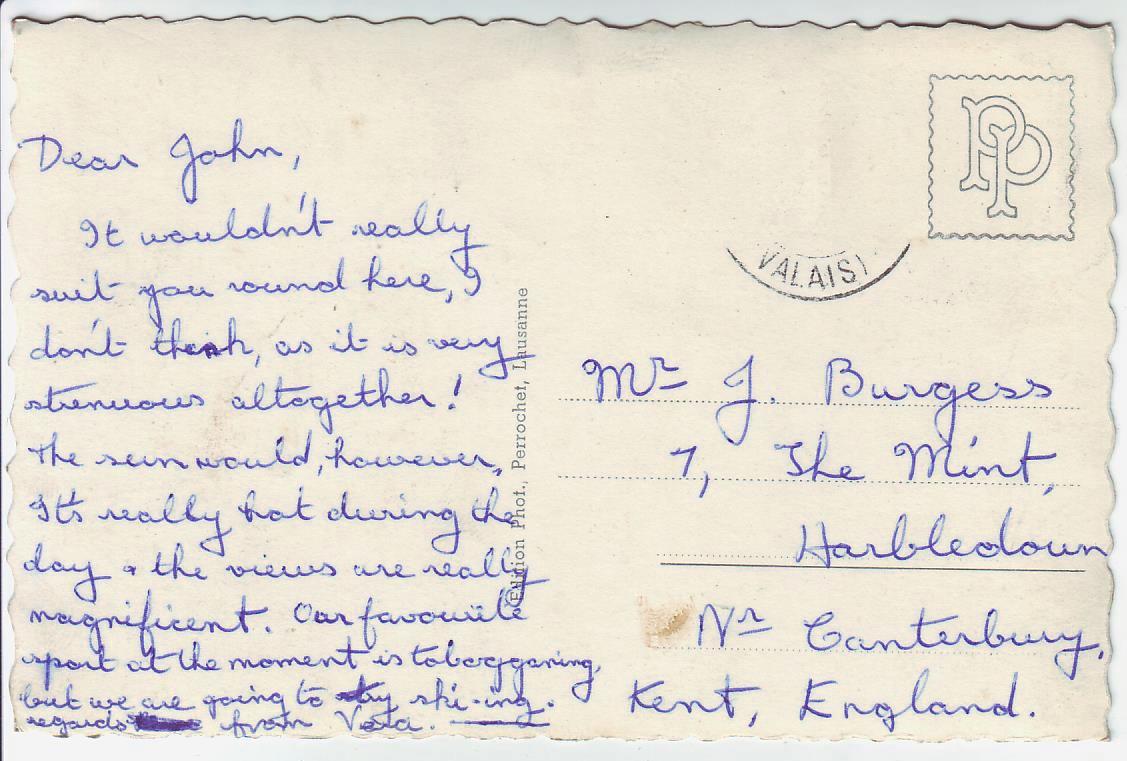 Dear John,
It wouldn't really
suit you round here, I
don't think, as it is very
strenuous altogether!
The sun would, however,
It's really hot during the
day & the views are really
magnificent. Our favourite
sport at the moment is tobogganing,
but we are going to try ski-ing.
regards from Vera.
© Edition Phot., Perrochet, Lausanne
PP
(VALAIS)
Mr J. Burgess
7, The Mint,
Harbledown
Nr Canterbury,
Kent, England.